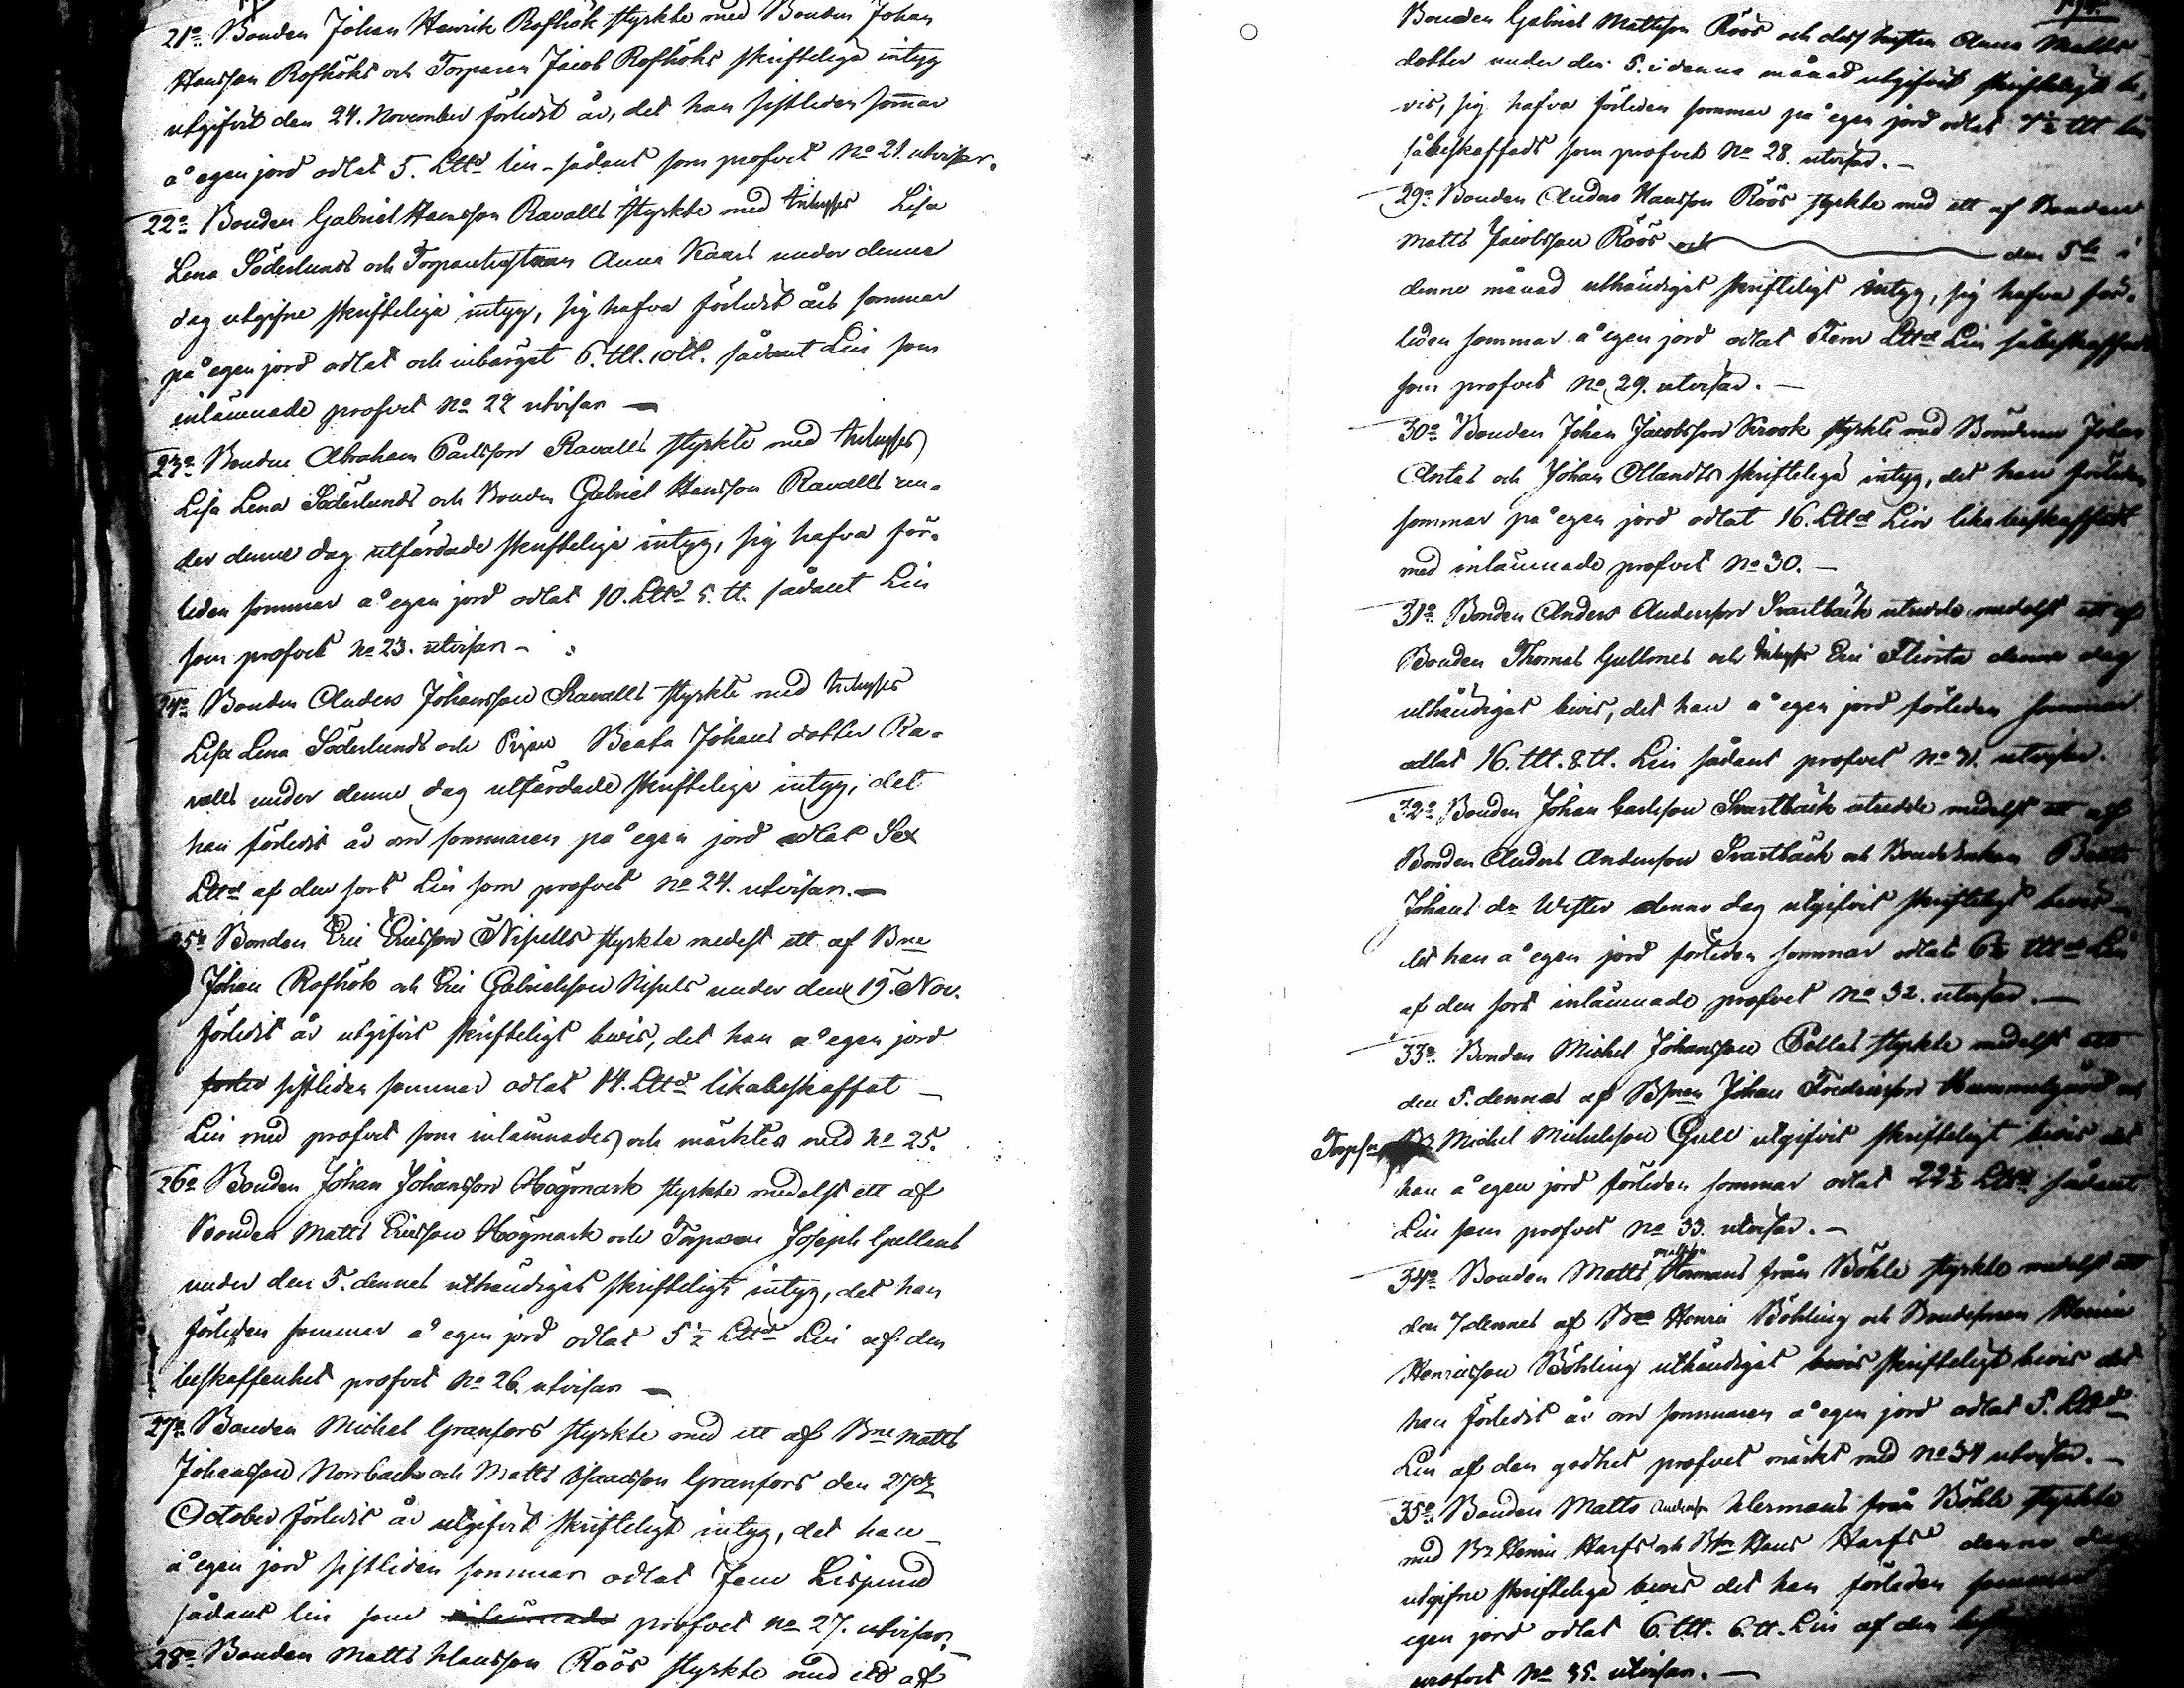 21o Bonden Johan Henrik Rofhök styrkte med Bonden Johan
Hansson Rofhöks och Torparen Jacob Rofhöks skrifteliga intyg
utgifvit den 24. November förledit år, det han sistleden sommar
å egen jord odlat 5. Lttd lin sådant som profvet No 21. utvisar.
22o Bonden Gabriel Hansson Ravalls styrkte med Lisa
Lena Söderlunds och Torparehustrun Anna Kaars under denne
dag utgifne skrifteliga intyg, sig hafva förledit års sommar
på egen jord odlat och inbärgat 6. ttt. 10 tt. sådant Lin som
inlämnade profvet No 22 utvisar —
23o Bonden Abraham Carlsson Ravalls styrkte med
Lisa Lena Söderlunds och Bonden Gabriel Hansson Ravalls un-
der denne dag utfärdade skrifteliga intyg, sig hafva för-
leden sommar å egen jord odlat 10. Lttd 5. tt. sådant Lin
som profvet No 23. utvisar —
24o Bonden Anders Johansson Ravalls styrkte med
Lisa Lena Söderlunds och Pigan Beata Johans dotter Ra-
valls under denne dag utfärdade skrifteliga intyg, det
han förledit år om sommaren på egen jord odlat Sex
Lttd af den sort Lin som profvet No 24. utvisar. —
25o Bonden Eric Ericsson Nisells styrkte medelst ett af Bne
Johan Rofhök och Eric Gabrielsson Nisels under den 19. Nov.
förledit år utgifvit skrifteligt bevis, det han å egen jord
sistliden sommar odlat 14. Lttd likabeskaffat —
Lin med profvet som inlämnades och märktes med No 25.
26o Bonden Johan Johansson Högmark styrkte medelst ett af
Bonden Matts Ericsson Högmark och Torparen Joseph Gullans
under den 5. dennes uthändigat skrifteligt intyg, det han
förleden sommar å egen jord odlat 5 1/2 Lttd Lin af den
beskaffenhet profvet No 26. utvisar —
27o Bonden Michel Granfors styrkte med ett af Bne Matts
Johansson Norrback och Matts Isaacsson Granfors den 27de
October förledit år utgifvit skrifteligt intyg, det han
å egen jord sistliden sommar odlat Fem Lispund
sådant lin som inlämnade profvet No 27. utvisar. —
28o Bonden Matts Hansson Röös styrkte med ett af
Bonden Gabriel Mattsson Röös och dess hustru Anna Matts
dotter under den 5. i denna månad utgifvit skrifteligt be-
vis, sig hafva förleden sommar på egen jord odlat 7 1/2 ttt lin
såbeskaffadt som profvet No 28. utvisar. —
29o Bonden Anders Hansson Röös styrkte med ett af Bonden
Matts Jacobsson Röös och — den 5te i
denne månad uthändigat skrifteligt intyg, sig hafva för-
leden sommar å egen jord odlat Fem Lttd Lin såbeskaffadt
som profvet No 29. utvisar. —
30o Bonden Johan Jacobsson Krook styrkte med Bönderne Johan
Antas och Johan Ollandts skrifteliga intyg, det han förleden
sommar på egen jord odlat 16. Lttd Lin lika beskaffadt
med inlämnade profvet No 30. —
31o Bonden Anders Andersson Svartbäck utredde medelst ett af
Bonden Thomas Gullmes och Eric denne dag
uthändigat bevis, det han å egen jord förleden sommar
odlat 16. ttt. 8. tt. Lin sådant profvet No 31. utvisar.
32o Bonden Johan Carlsson Svartbäck utredde medelst ett af
Bonden Anders Andersson Svartbäck och Bondehustrun
Johans dr Wester denne dag utgifvit skrifteligt bevis
det han å egen jord förleden sommar odlat 6 1/2 ttt Lin
af den sort inlämnade profvet No 32. utvisar. —
33o Bonden Michel Johansson Pållas styrkte medelst ett
den 5. dennes af Bonden Johan Fredricsson och
Torpson Michel Michelsson Gull utgifvit skrifteligt bevis det
han å egen jord förleden sommar odlat 22 1/2 Lttd sådant
Lin som profvet No 33. utvisar. —
34o Bonden Matts Mattsson Hermans från Böhle styrkte medelst ett
den 7 dennes af Bne Henric Böhling och Bondesonen Henric
Henricsson Böhling uthändigat skrifteligt bevis det
han förledit år om sommaren å egen jord odlat 5. Lttd
Lin af den godhet profvet märkt med No 34 utvisar. —
35o Bonden Matts Andersson Hermans från Böhle styrkte
med Bn Henric Harfs och Bn Hans Harfs denne dag
utgifne skrifteliga bevis det han förleden sommar
egen jord odlat 6. ttt. 6. tt. Lin af den
profvet No 35. utvisar. —